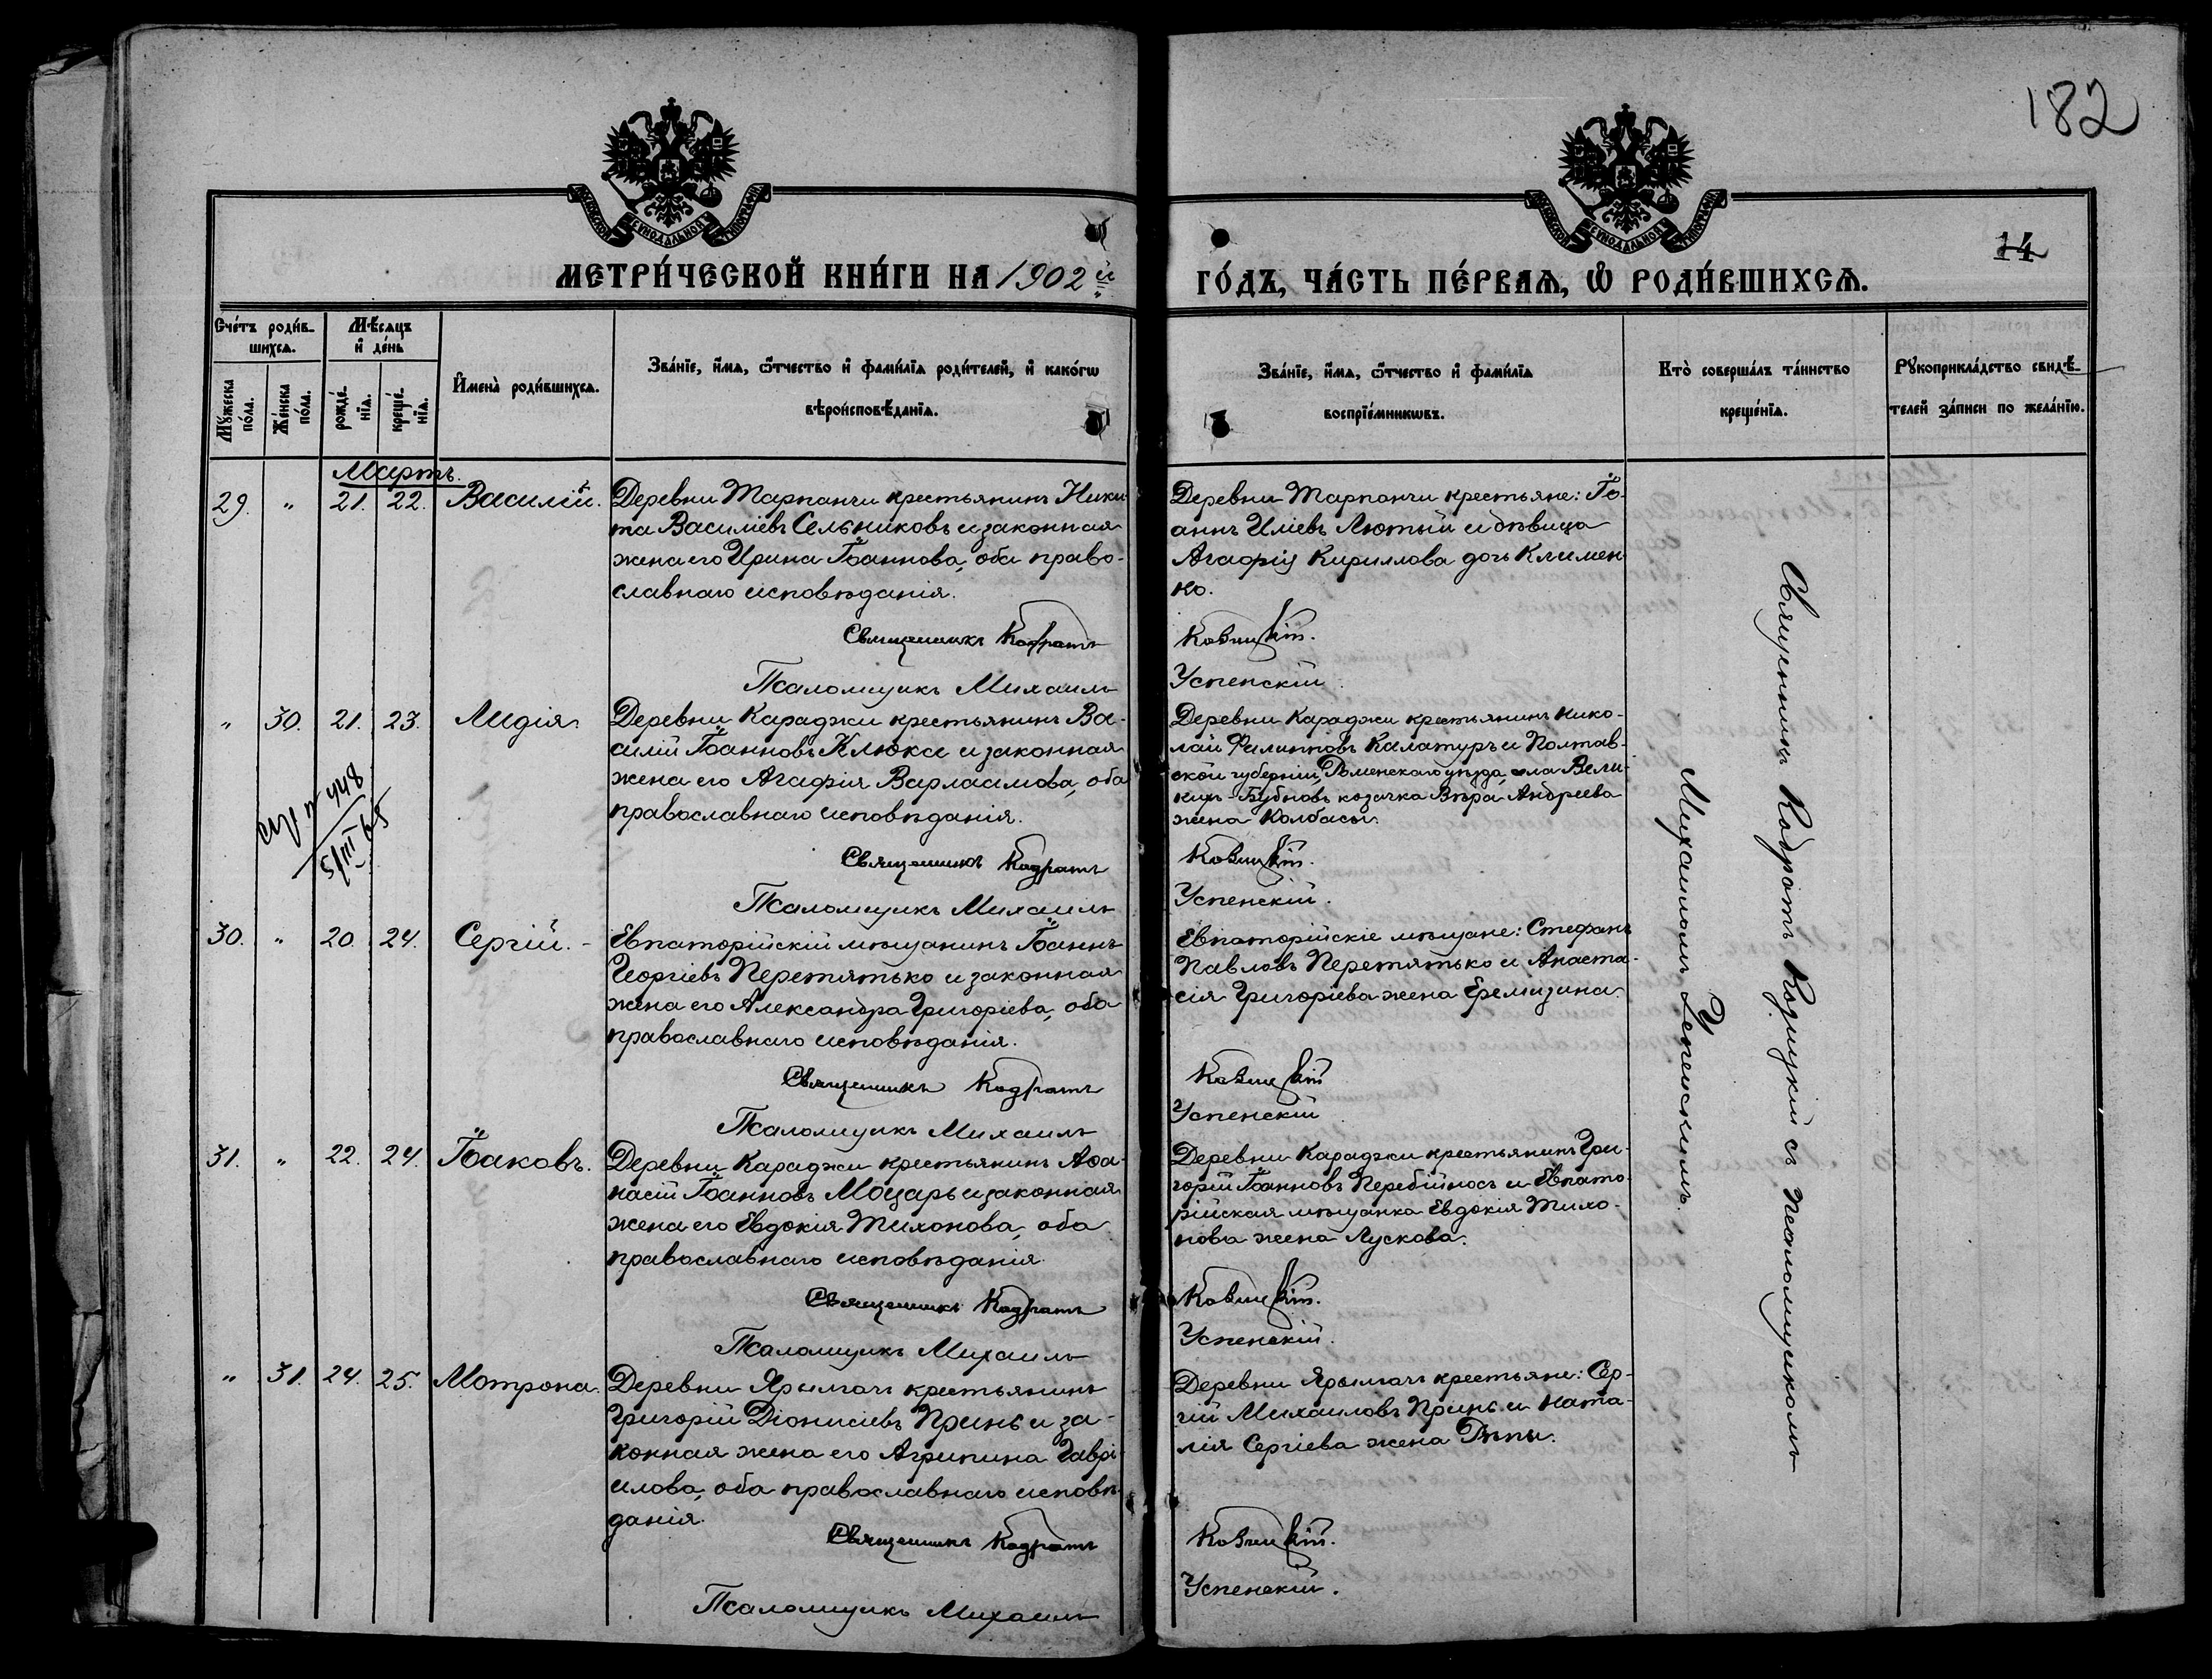 182
14
МЕТРИ́ЧЕСКОЙ КНИ́ГИ НА 1902й
ГО́ДЪ, ЧА́СТЬ ПЕ́РВАѦ, Ѡ҆ РОДИ́ВШИХСѦ.
Сче́тъ роди́в-
шихсѧ.
Мѣ́сѧцъ
и҆ де́нь
Мꙋ́жеска
по́ла.
Же́нска
по́ла.
рожде́-
нїѧ.
креще́-
нїѧ.
И҆мена̀ роди́вшихсѧ.
Зва́нїе, и҆́мѧ, ѻ҆́тчество и҆ фами́лїѧ роди́телей, и҆ како́гѡ
вѣроисповѣ́данїѧ.
Зва́нїе, и҆́мѧ, ѻ҆́тчество и҆ фами́лїѧ
воспрїе́мникѡвъ.
Кто̀ соверша́лъ та́инство
креще́нїѧ.
Рꙋкоприкла́дство свидѣ́-
телей за́писи по жела́нїю.
Мартъ.
29. " 21. 22. Василій.
Деревни Тарпанчи крестьянинъ Ники-
та Василіевъ Сельниковъ и законная
жена его Ирина Іоаннова, оба право-
славнаго исповѣданія.
Священникъ Кодратъ
Псаломщикъ Михаилъ
Деревни Тарпанчи крестьяне: Іо-
аннъ Иліевъ Лютый и дѣвица
Агафія Кириллова дочь Климен-
ко.
Козицкій.
Успенскій.
" 30. 21. 23. Лидія.
Деревни Караджи крестьянинъ Ва-
силій Іоанновъ Клюка и законная
жена его Агафія Варлаамова, оба
православнаго исповѣданія.
Священникъ Кодратъ
Псаломщикъ Михаилъ
Деревни Караджи крестьянинъ Нико-
лай Филипповъ Калатуръ и Полтав-
ской губерніи, Роменскаго уѣзда, села Вели-
кихъ-Бубновъ козачка Вѣра Андреева
жена Колбасы.
Козицкій.
Успенскій.
448
5/III 65
30. " 20. 24. Сергій.
Евпаторійскій мѣщанинъ Іоаннъ
Георгіевъ Перетятько и законная
жена его Александра Григоріева, оба
православнаго исповѣданія.
Священникъ Кодратъ
Псаломщикъ Михаилъ
Евпаторійскіе мѣщане: Стефанъ
Павловъ Перетятько и Анаста-
сія Григоріева жена Еремизина.
Козицкій
Успенскій
31. " 22. 24. Іаковъ.
Деревни Караджи крестьянинъ Аѳа-
насій Іоанновъ Моцарь и законная
жена его Евдокія Тихонова, оба
православнаго исповѣданія.
Священникъ Кодратъ
Псаломщикъ Михаилъ
Деревни Караджи крестьянинъ Гри-
горій Іоанновъ Перебійносъ и Евпато-
рійская мѣщанка Евдокія Тихо-
нова жена Лускова.
Козицкій.
Успенскій.
" 31. 24. 25. Мотрона.
Деревни Ярылгачъ крестьянинъ
Григорій Діонисіевъ Принь и за-
конная жена его Агрипина Гаврі-
илова, оба православнаго исповѣ-
данія.
Священникъ Кодратъ
Псаломщикъ Михаилъ
Деревни Ярылгачъ крестьяне: Сер-
гій Михаиловъ Принь и Ната-
лія Сергіева жена Рѣпы.
Козицкій.
Успенскій.
Священникъ Кодратъ Козицкій съ псаломщикомъ
Михаиломъ Успенскимъ.